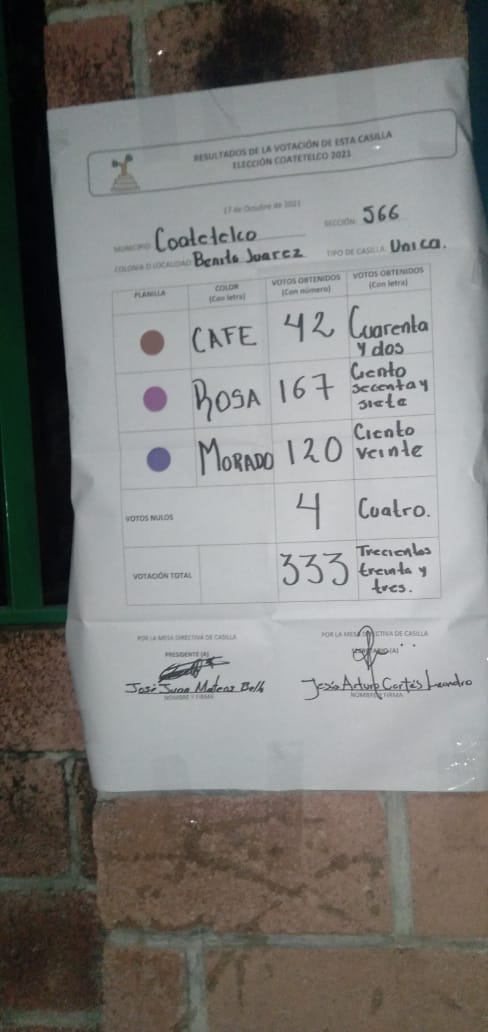 RESULTADOS DE LA VOTACIÓN DE ESTA CASILLA
ELECCIÓN COATETELCO 2021
17 de Octubre de 2021
MUNICIPIO: Coatetelco SECCIÓN: 566
COLONIA O LOCALIDAD: Benito Juarez TIPO DE CASILLA: Unica.
PLANILLA COLOR (Con letra) VOTOS OBTENIDOS (Con número) VOTOS OBTENIDOS (Con letra)
CAFE 42 Cuarenta y dos
ROSA 167 Ciento secenta y siete
MORADO 120 Ciento veinte
VOTOS NULOS 4 Cuatro.
VOTACIÓN TOTAL 333 Trecientos treinta y tres.
POR LA MESA DIRECTIVA DE CASILLA POR LA MESA DIRECTIVA DE CASILLA
PRESIDENTE (A) SECRETARIO (A)
José Juan Mateos Bello Jesús Arturo Cortés Leandro
NOMBRE Y FIRMA NOMBRE Y FIRMA